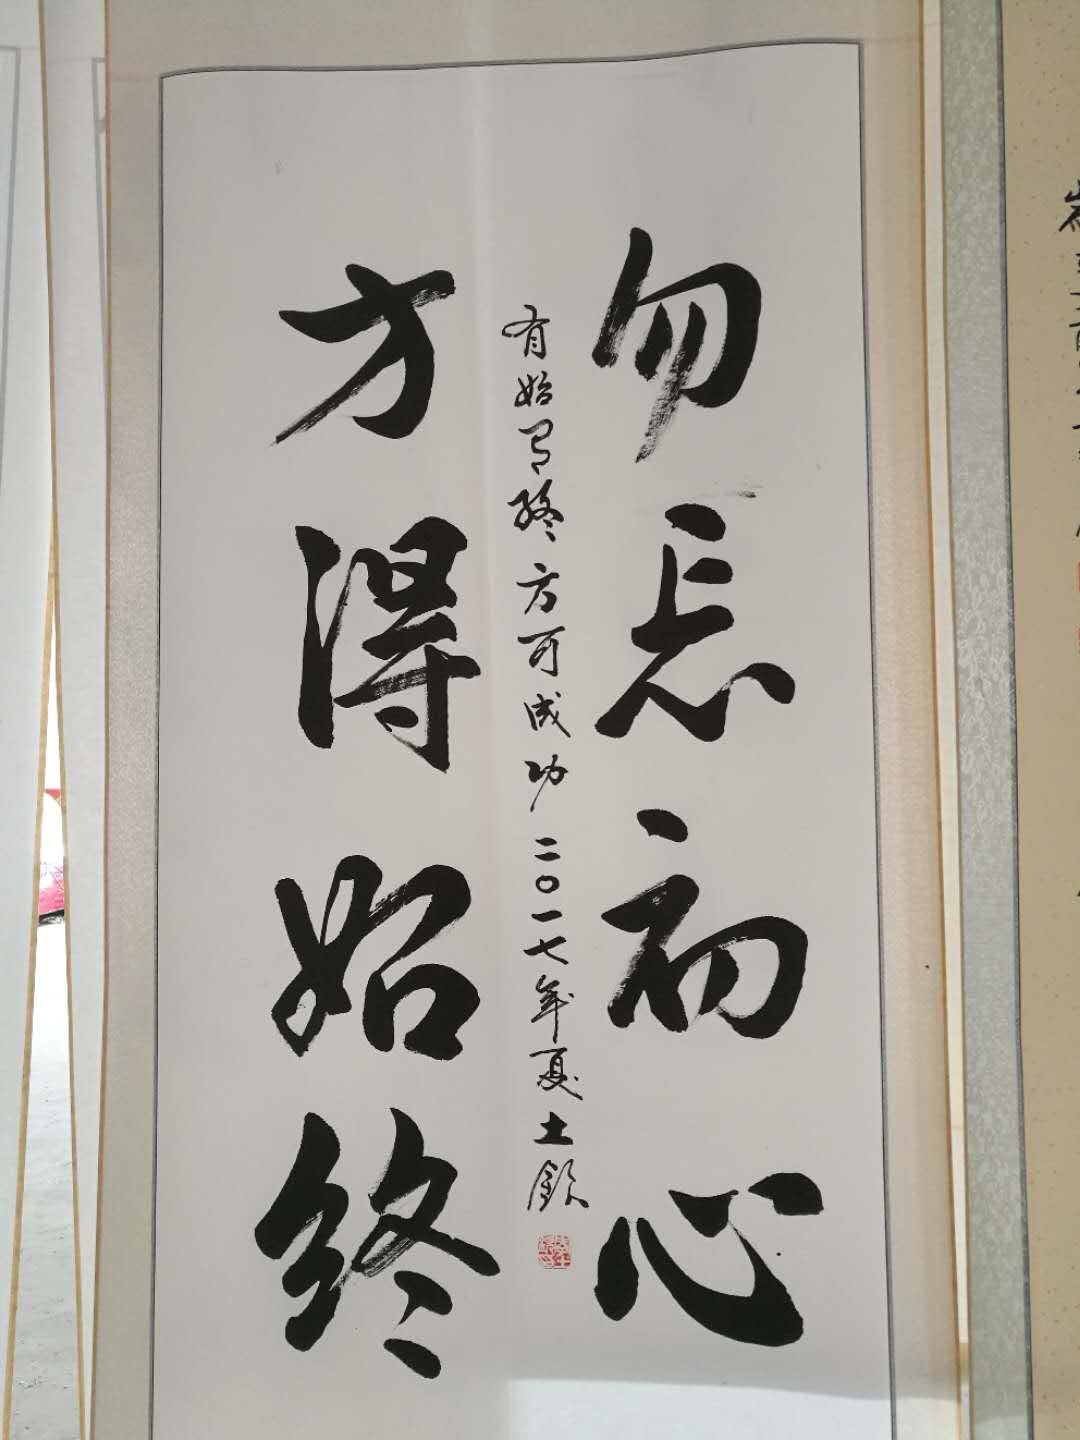 勿忘初心
有始有终方可成功二〇一七年夏土钦
方得始终